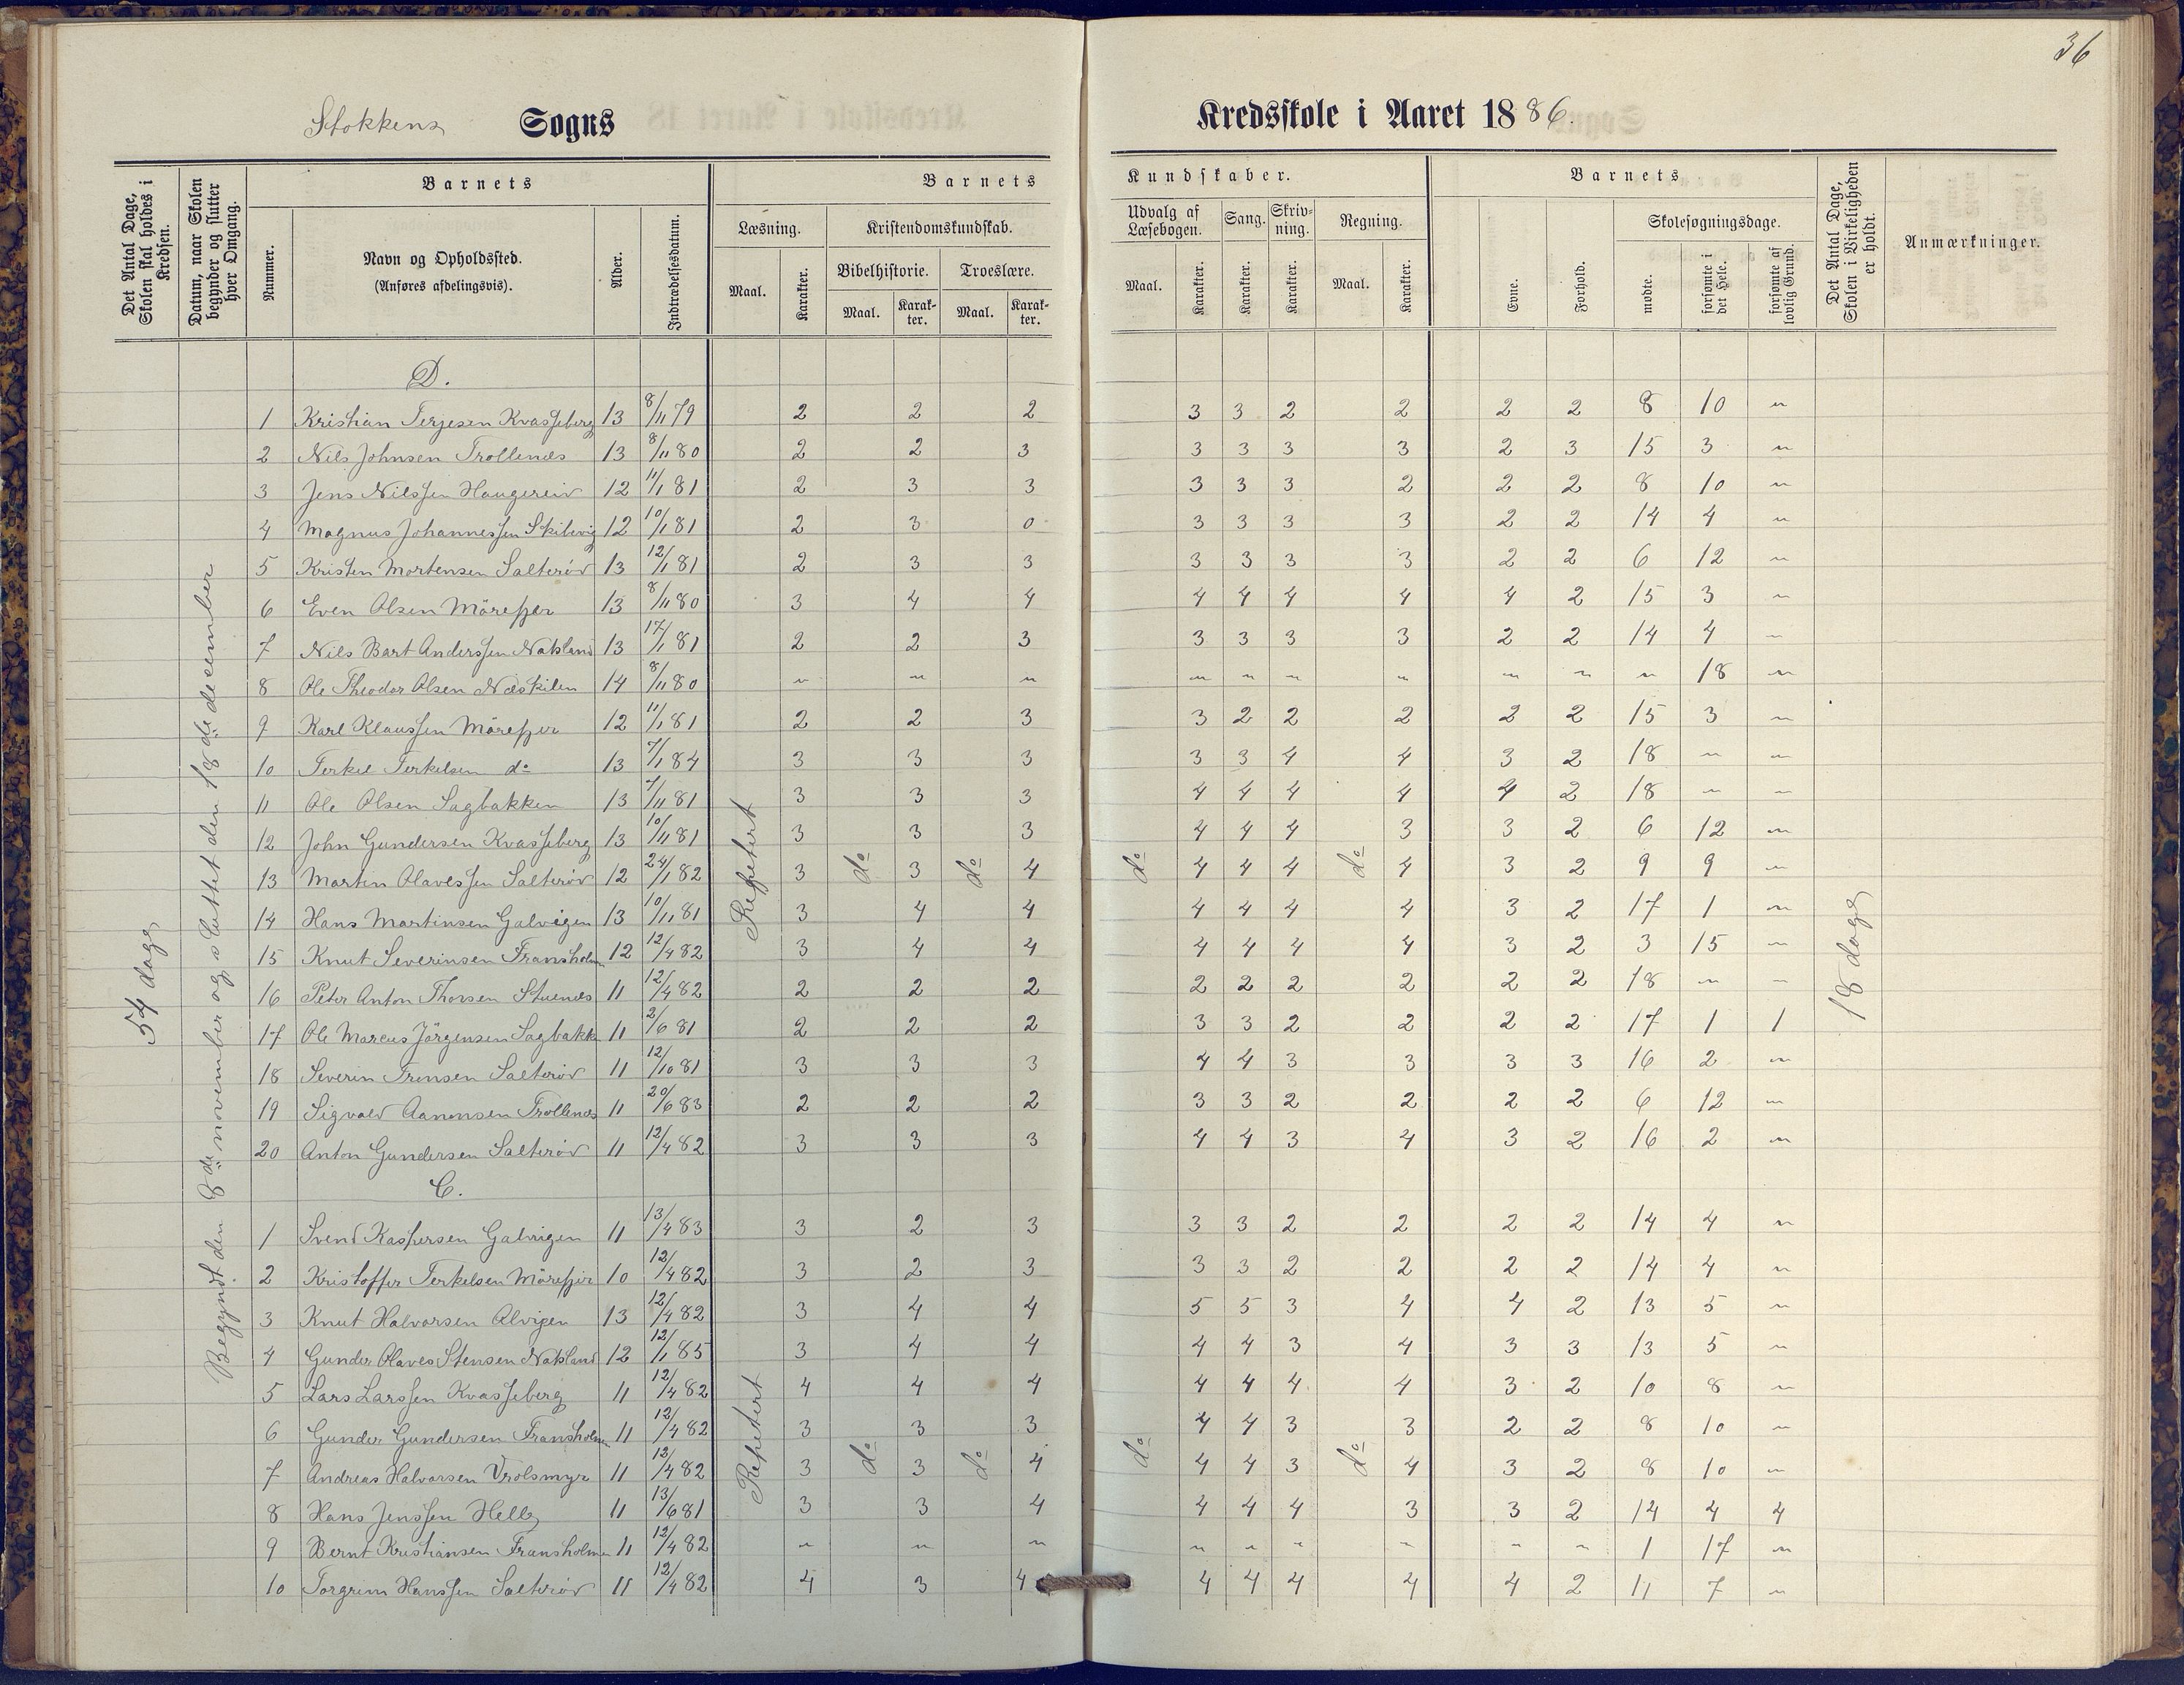 36
Stokkens Sogns Kredsskole i Aaret 1886.
Det Antal Dage, Skolen skal holdes i Kredsen.
Datum, naar Skolen begynder og slutter hver Omgang.
Barnets
Nummer.
Navn og Opholdssted.
(Anføres afdelingsvis).
Alder.
Indtrædelsesdatum.
Barnets Kundskaber.
Læsning.
Maal.
Karakter.
Kristendomskundskab.
Bibelhistorie.
Maal.
Karakter.
Troeslære.
Maal.
Karakter.
Udvalg af Læsebogen.
Maal.
Karakter.
Sang.
Karakter.
Skrivning.
Karakter.
Regning.
Maal.
Karakter.
Barnets
Evne.
Forhold.
Skolesøgningsdage.
mødte.
forsømte i det Hele.
forsømte af lovlig Grund.
Det Antal Dage, Skolen i Virkeligheden er holdt.
Anmærkninger.
54 dage
Begyndt den 8de november og sluttet den 18de december
D.
1 Kristian Terjesen Kvasseberg 13 8/11 79 2 2 2 3 3 2 2 2 2 8 10 "
2 Nils Johnsen Trollenes 13 8/11 80 2 2 3 3 3 3 3 2 3 15 3 "
3 Jens Nilssen Haugereid 12 11/1 81 2 3 3 3 3 3 2 2 2 8 10 "
4 Magnus Johannessen Skibevig 12 10/1 81 2 3 0 3 3 3 3 2 2 14 4 "
5 Kristen Mortensen Salterød 13 12/1 81 2 3 3 3 3 3 3 2 2 6 12 "
6 Even Olsen Mörefjer 13 8/11 80 3 4 4 4 4 4 4 4 2 15 3 "
7 Nils Bart Anderssen Natsland 13 17/1 81 2 2 3 3 3 3 3 2 2 14 4 "
8 Ole Theodor Olsen Neskilen 14 8/11 80 " " " " " " " " " " 18 "
9 Karl Klaussen Mörefjer 12 11/1 81 2 2 3 3 2 2 2 2 2 15 3 "
10 Terkel Terkelsen do 13 7/1 84 3 3 3 3 3 4 4 3 2 18 " "
11 Ole Olsen Sagbakken 13 7/11 81 3 3 3 4 4 4 4 4 2 18 " "
12 John Gundersen Kvasseberg 13 10/11 81 3 3 3 4 4 4 3 3 2 6 12 "
13 Marten Olavessen Salterød 12 24/1 82 3 3 4 4 4 4 4 3 2 9 9 "
14 Hans Martinsen Galvigen 13 10/11 81 3 4 4 4 4 4 4 3 2 17 1 "
15 Knut Severinsen Fransholm 12 12/4 82 3 4 4 4 4 4 4 3 2 3 15 "
16 Peter Anton Thorsen Stuenes 11 12/4 82 2 2 2 2 2 2 2 2 2 18 " "
17 Ole Marcus Jörgensen Sagbakk 11 2/6 81 2 2 2 3 3 2 2 2 2 17 1 1
18 Severin Trensen Salterød 11 12/10 81 3 3 3 4 4 3 3 3 3 16 2 "
19 Sigvald Aanonsen Trollenes 11 20/6 83 2 2 2 3 3 2 2 2 2 6 12 "
20 Anton Gundersen Salterød 11 12/4 82 3 3 3 4 4 3 4 3 2 16 2 "
Repetert do do do do
18 dage
C.
1 Svend Kaspersen Galvigen 11 13/4 83 3 2 3 3 3 2 2 2 2 14 4 "
2 Kristoffer Terkelsen Mörefjer 10 12/4 82 3 2 3 3 3 2 2 2 2 14 4 "
3 Knut Halvorsen Alvigen 13 12/4 82 3 4 4 5 5 3 4 4 2 13 5 "
4 Gunder Olaves Stensen Natsland 12 12/1 85 3 4 4 4 4 3 4 3 3 13 5 "
5 Lars Larssen Kvasseberg 11 12/4 82 4 4 4 4 4 4 4 3 2 10 8 "
6 Gunder Gundersen Fransholmen 11 12/4 82 3 3 3 4 4 3 3 2 2 8 10 "
7 Andreas Halvorsen Vrölsmyr 11 12/4 82 3 3 4 4 4 3 4 3 2 8 10 "
8 Hans Jenssen Helle 11 13/6 81 3 3 4 4 4 4 3 3 2 14 4 4
9 Bernt Kristiansen Fransholmen 11 12/4 82 " " " " " " " " " 1 17 "
10 Torgrim Hanssen Salterød 11 12/4 82 4 3 4 4 4 4 4 4 2 11 7 "
Repetert do do do do